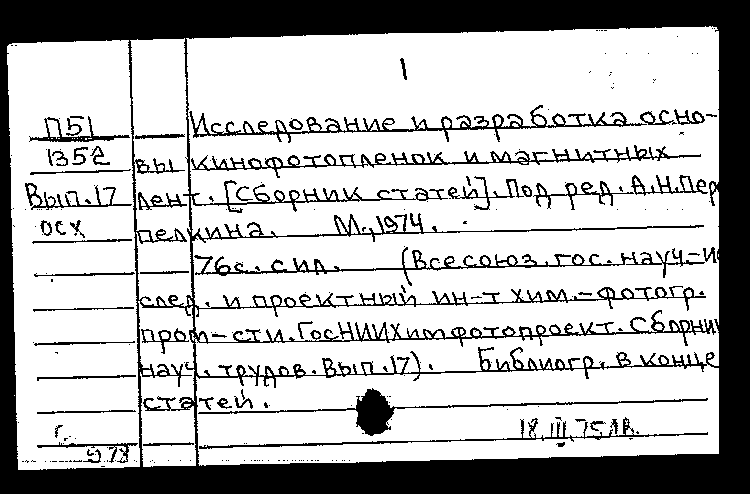 1
П51 Исследование и разработка осно-
1352 вы кинофотопленок и магнитных
Вып.17 лент. [Сборник статей]. Под ред. А.Н.Пер
осх пелкина. М., 1974.
76с. с ил. (Всесоюз. гос. науч-ис
след. и проектный ин-т хим.-фотогр.
пром-сти. ГосНИИХимфотопроект. Сборник
науч. трудов. Вып.17). Библиогр. в конце
статей.
г. 18.III.75 ЛВ.
978